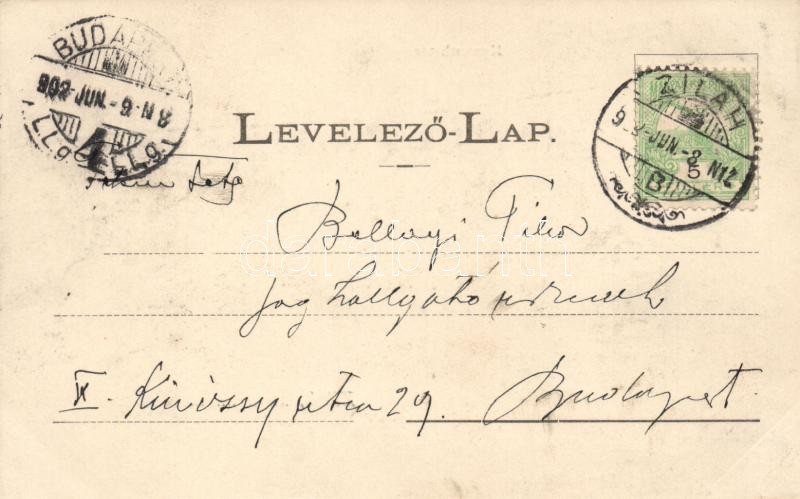 BUDAPEST
902-JUN.-9-N8
LEVELEZŐ-LAP.
ZILAH
9 2-JUN-8 N12
B
5
Ballagi Tibor
Jog hallgató úrnak
IX. Kinizsy utca 29. Budapest.
darabanth